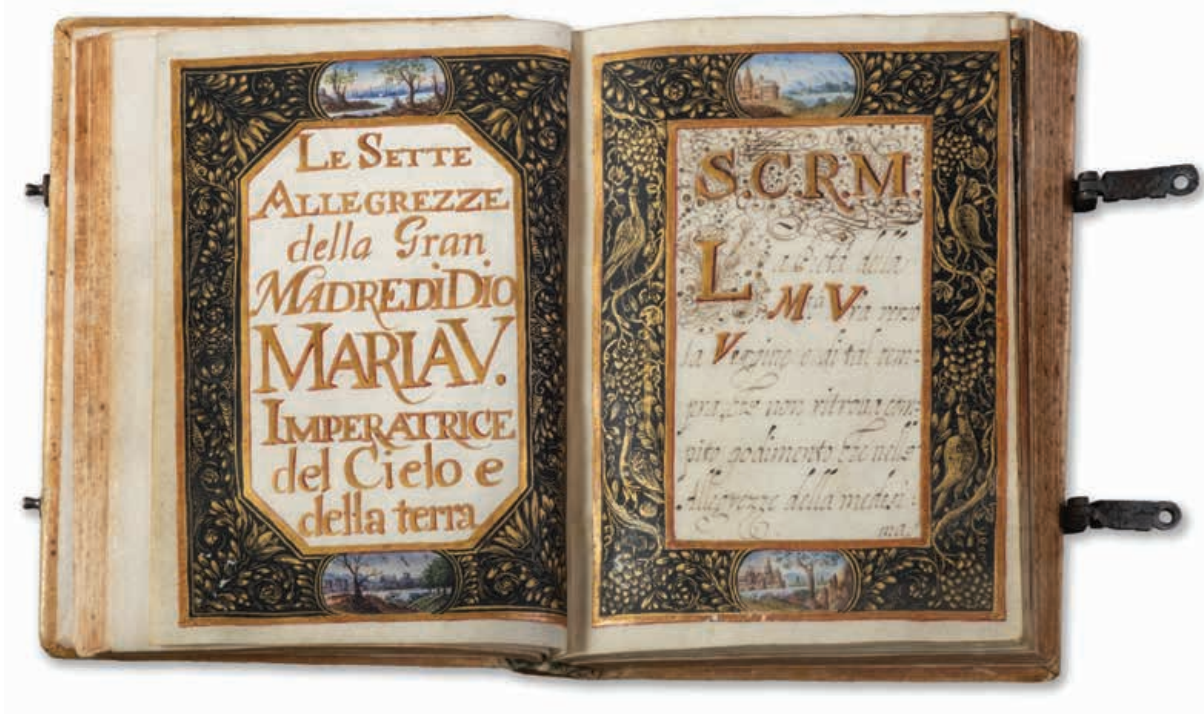 LE SETTE
ALLEGREZZE
della Gran
MADRE DI DIO
MARIA V.
IMPERATRICE
del Cielo e
della terra
S.C.R.M.
La Pietà della
M.tà V.ra verso
la Vergine e di tal tem=
pra, che non ritroua com=
pito godimento che nelle
Allegrezze della medesi:
ma.